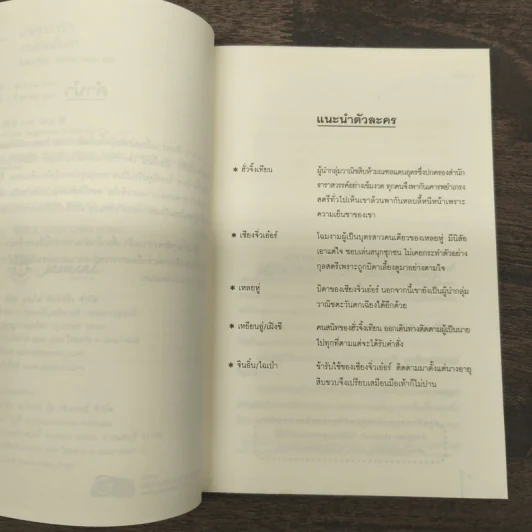 แนะนำตัวละคร
* ฮั่วจิ้งเทียน ผู้นำกลุ่มวาณิชสิบห้ามณฑลแดนอุดรซึ่งปกครองสำนัก
ธาราสวรรค์อย่างเข้มงวด ทุกคนจึงพากันเคารพยำเกรง
สตรีทั่วไปเห็นเขาล้วนพากันหลบลี้หนีหน้าเพราะ
ความเย็นชาของเขา
* เซียงจิ่วเย่อร์ โฉมงามผู้เป็นบุตรสาวคนเดียวของเหลยหู่ มีนิสัย
เอาแต่ใจ ชอบเล่นสนุกซุกซน ไม่เคยกระทำตัวอย่าง
กุลสตรีเพราะถูกบิดาเลี้ยงดูมาอย่างตามใจ
* เหลยหู่ บิดาของเซียงจิ่วเย่อร์ นอกจากนี้เขายังเป็นผู้นำกลุ่ม
วาณิชตะวันตกเฉียงใต้อีกด้วย
* เหยียนอู่/เฝิงซี คนสนิทของฮั่วจิ้งเทียน ออกเดินทางติดตามผู้เป็นนาย
ไปทุกที่ตามแต่จะได้รับคำสั่ง
* จินอิ๋น/ไฉเป่า ข้ารับใช้ของเซียงจิ่วเย่อร์ ติดตามมาตั้งแต่นางอายุ
สิบขวบจึงเปรียบเสมือนมือเท้าก็ไม่ปาน